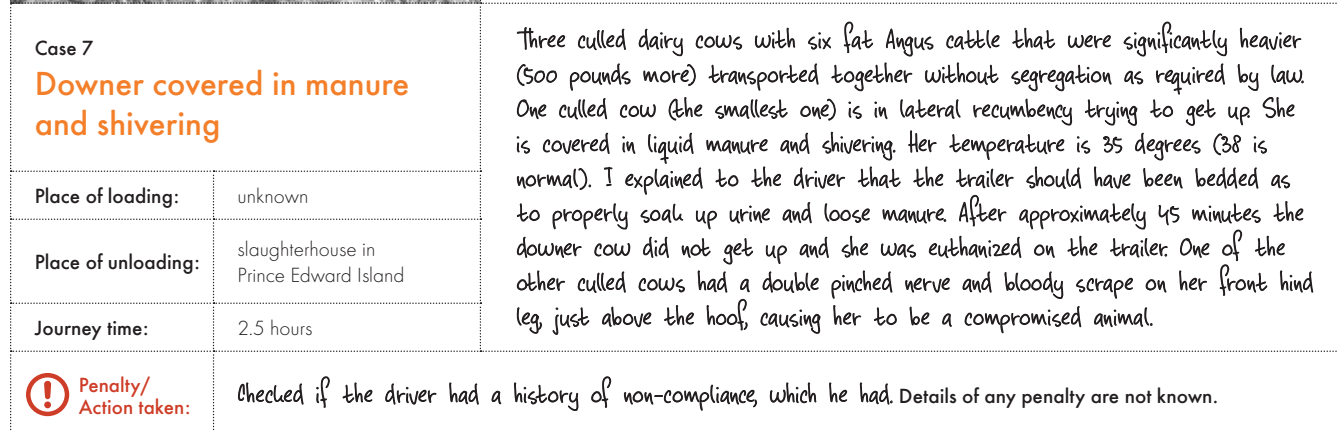 Case 7
Downer covered in manure
and shivering
Place of loading: unknown
Place of unloading: slaughterhouse in
Prince Edward Island
Journey time: 2.5 hours
Three culled dairy cows with six fat Angus cattle that were significantly heavier
(500 pounds more) transported together without segregation as required by law.
One culled cow (the smallest one) is in lateral recumbency trying to get up. She
is covered in liquid manure and shivering. Her temperature is 35 degrees (38 is
normal). I explained to the driver that the trailer should have been bedded as
to properly soak up urine and loose manure. After approximately 45 minutes the
downer cow did not get up and she was euthanized on the trailer. One of the
other culled cows had a double pinched nerve and bloody scrape on her front hind
leg, just above the hoof, causing her to be a compromised animal.
Penalty/
Action taken:
Checked if the driver had a history of non-compliance, which he had. Details of any penalty are not known.